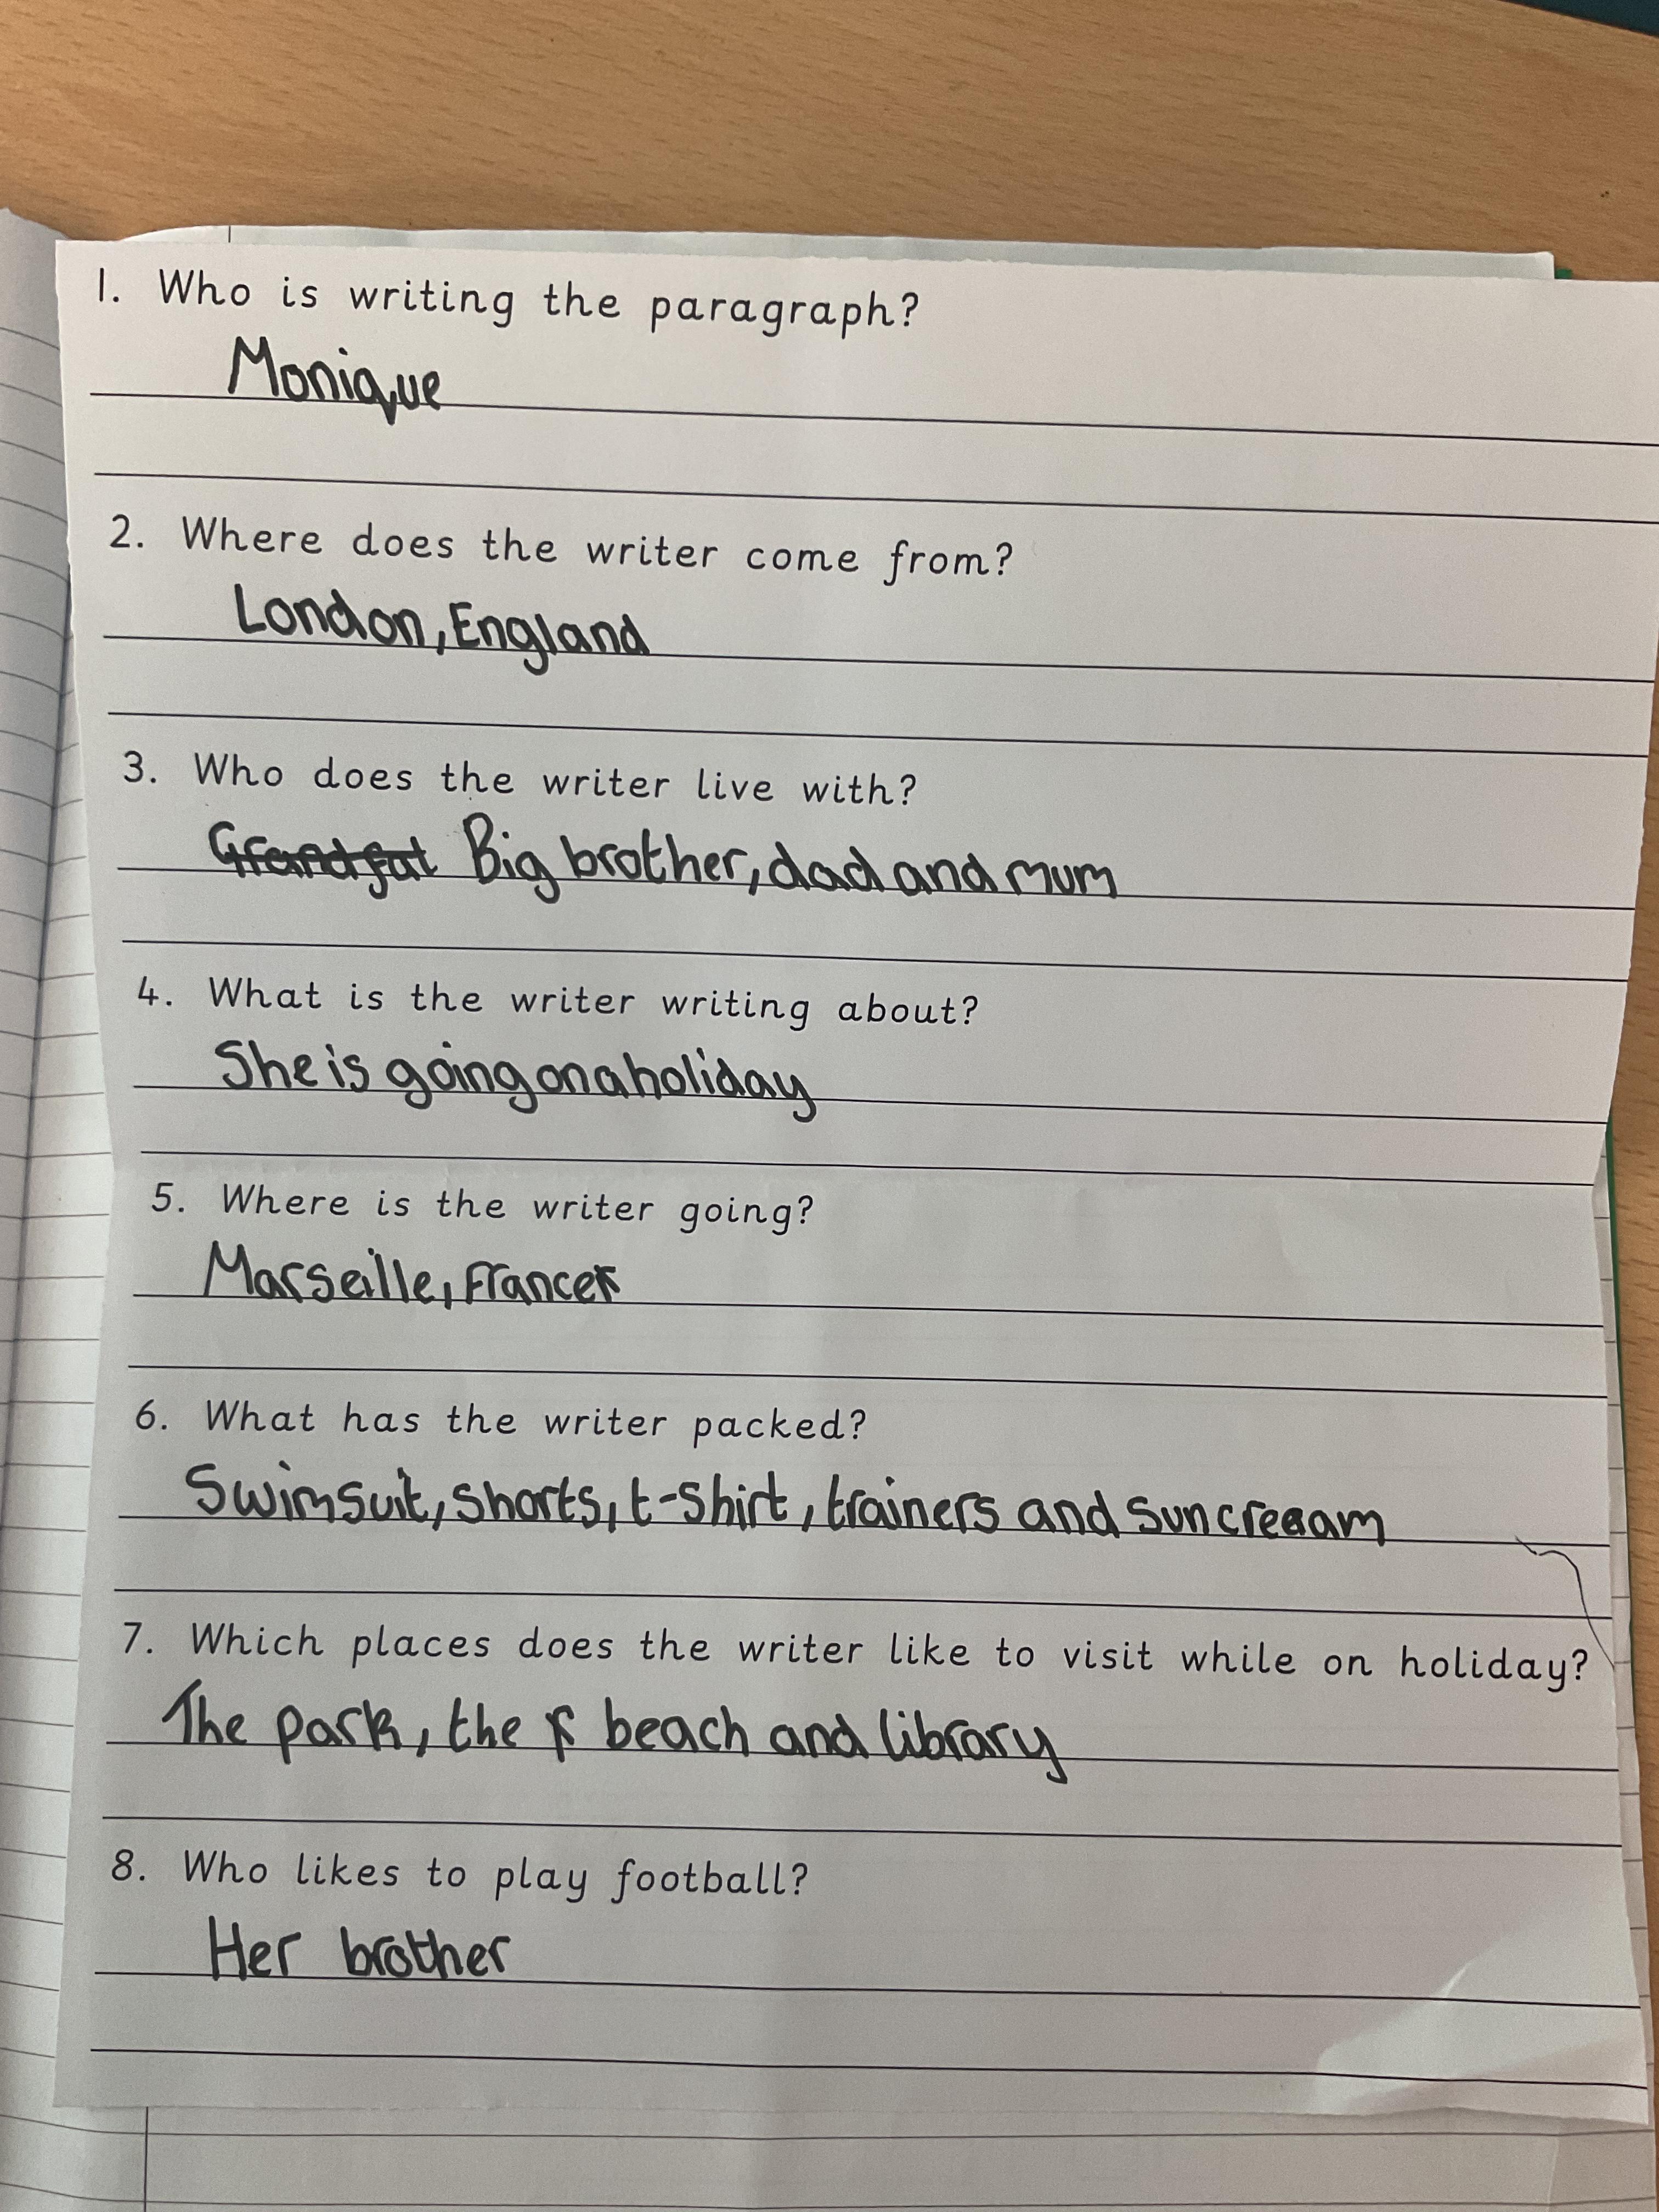 1. Who is writing the paragraph?
Monique
2. Where does the writer come from?
London, England
3. Who does the writer live with?
Grandfat Big brother, dad and mum
4. What is the writer writing about?
She is going on a holiday
5. Where is the writer going?
Marseille, France
6. What has the writer packed?
Swimsuit, shorts, t-shirt, trainers and sun creeam
7. Which places does the writer like to visit while on holiday?
The park, the beach and library
8. Who likes to play football?
Her brother